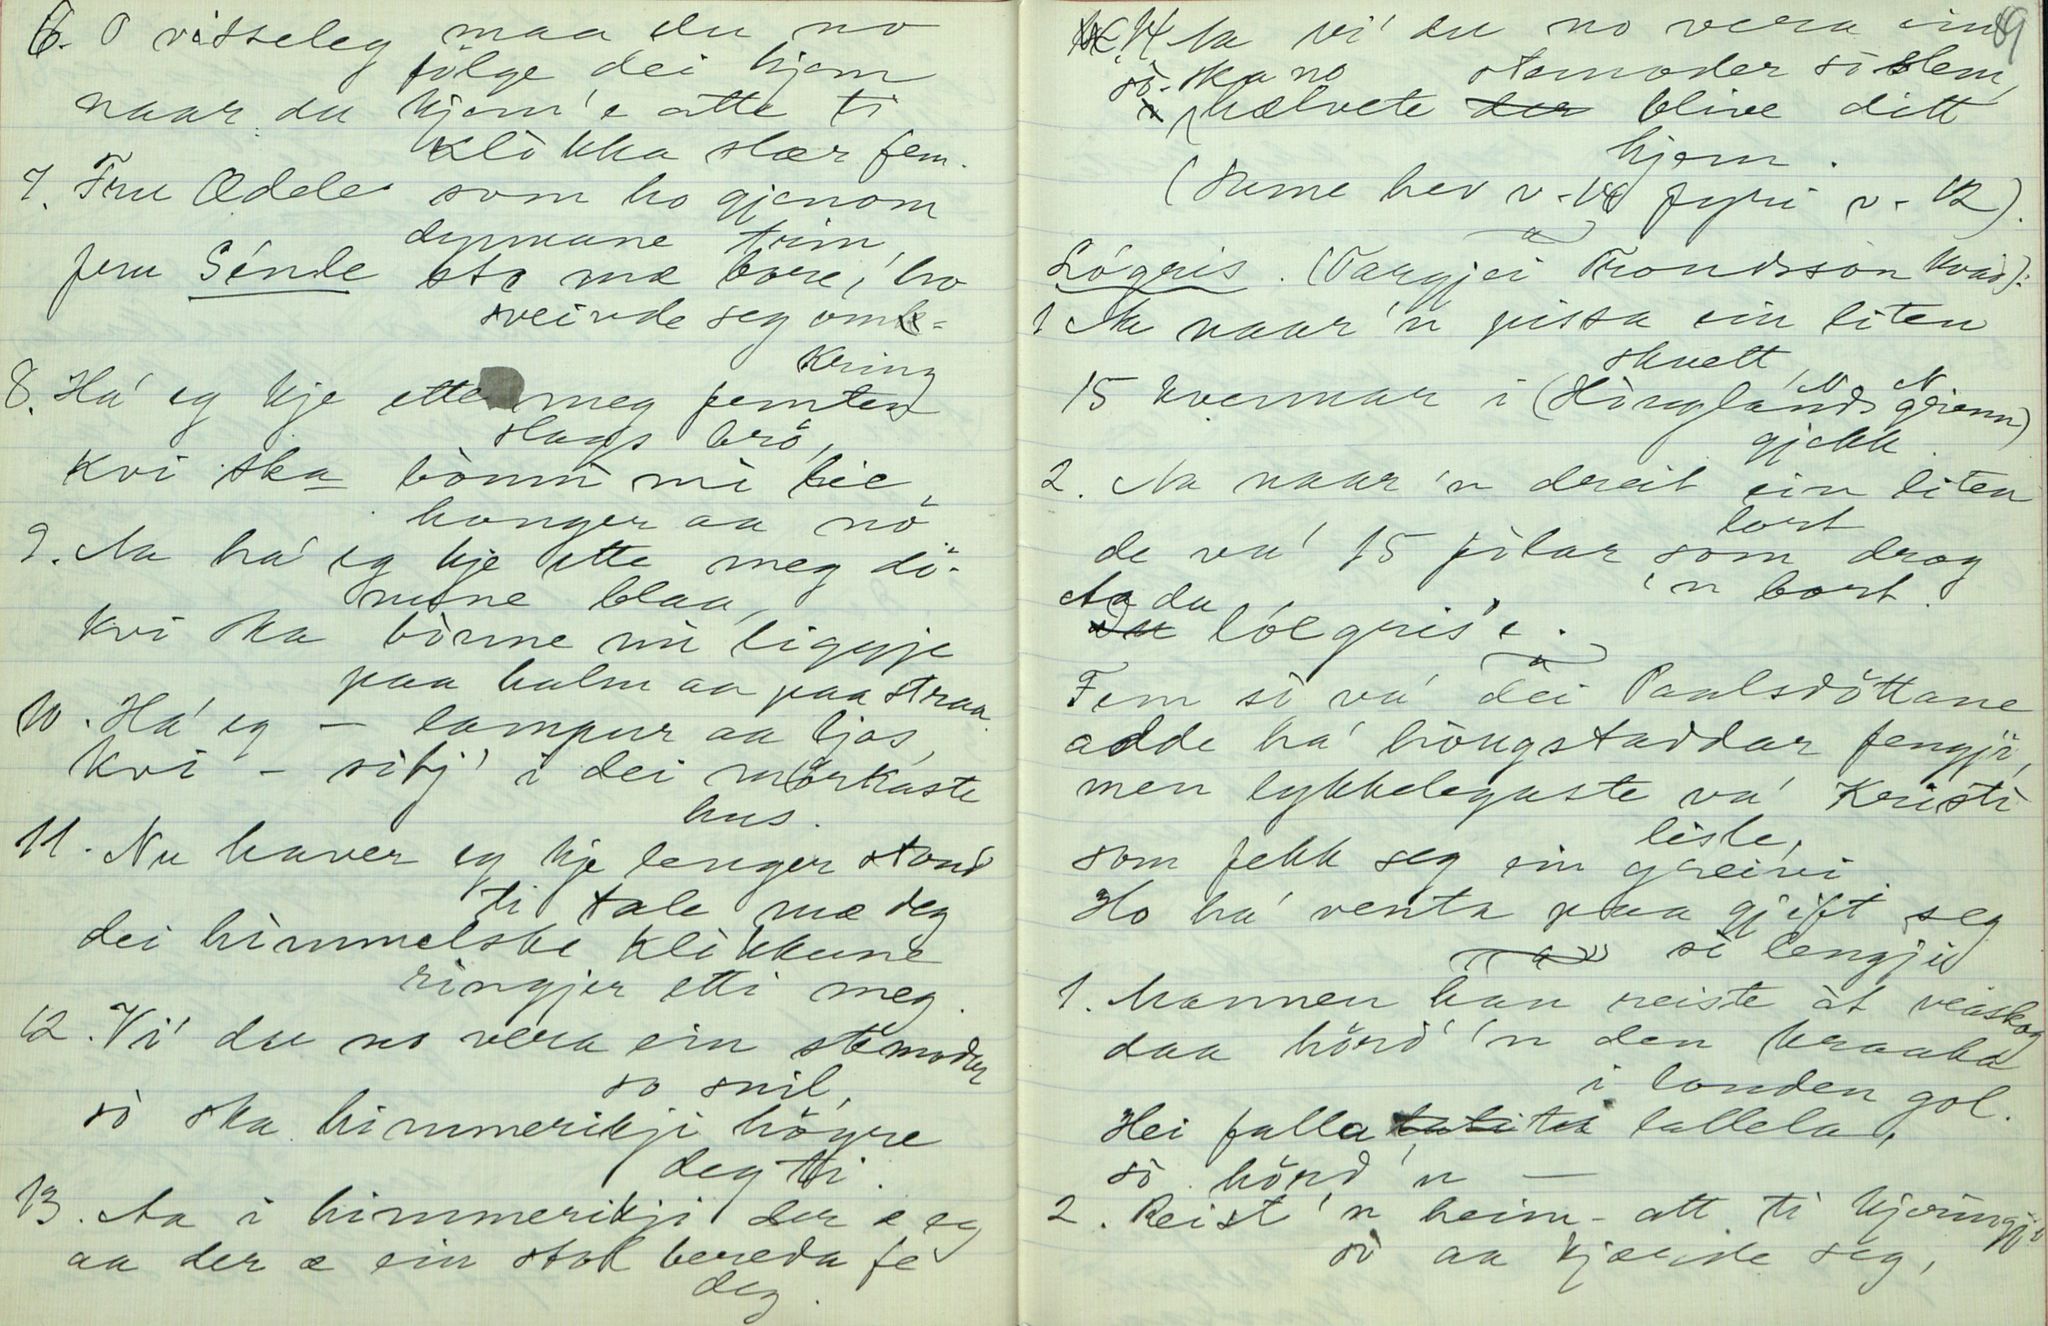 6. O visseleg maa du no
fölge dei hjem
naar du kjem'e atte ti
Klòkka slær fem.
7. Fru Ædele som ho gjenom
dynnane trin,
feru Sénde sto mæ bore, ho
sveivde seg om-
kring
8. Há eg kje ette meg femten
slags brö,
Kvi ska bònni mi lie
honger aa nö
9. Aa há eg kje ette meg dí-
nune blaa,
Kvi ska bònne mi liggje
paa halm aa paa straa.
10. Há eg – lampur aa ljos,
Kvi – sitj' i dei mörkaste
hus.
11. Nu haver eg kje lenger stond
ti tale mæ deg
dei himmelske Klòkkune
ringjer etti meg.
12. Vi' du no vera ein stemoder
so snil,
sò ska himmerikji högre
deg ti.
13. Aa i himmerikji der e eg
aa der æ ein stol bereda fe
deg.
89
14 Aa vi' du no vera ein
stemoder sò slem,
sò ska no
hælvete der blive ditt
hjem.
(Sume hev v-14 fyri v-12).
Lógris. (Targjei Trondsson kvad):
1 Aa naar'n pissa ein liten
skvett,
15 kvennar i (Hònglands grenn)
gjekk.
2. Aa naar'n dreit ein liten
lort
de va' 15 pílar som drog
'n bort.
Aa du
Du lólgris'e.
Fem sò vá dei Paalsdöttane
adde há hòugstaddar fengji,
men lykkelegaste vá Kristi
lisle,
som fekk seg ein greivi
Ho há venta paa gjift seg
sò lengji
1. Mannen han reiste àt veaskog
daa hörd''n den kraaka
i londen gol.
Hei falla lallela,
sò hörd'n —
2. Reist'n heim- att ti kjeringji
sò aa kjærde seg,